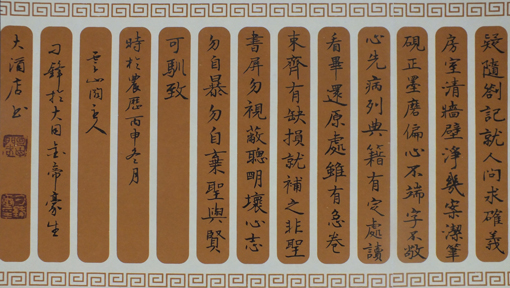 疑隨劄記就人問求確義
房室清墻壁淨幾案潔筆
硯正墨磨偏心不端字不敬
心先病列典籍有定處讀
看畢還原處雖有急卷
束齊有缺損就補之非聖
書屏勿視蔽聰明壞心志
勿自暴勿自棄聖與賢
可馴致
時於農歷丙申月
山人
於大田金帝豪生
大酒店書